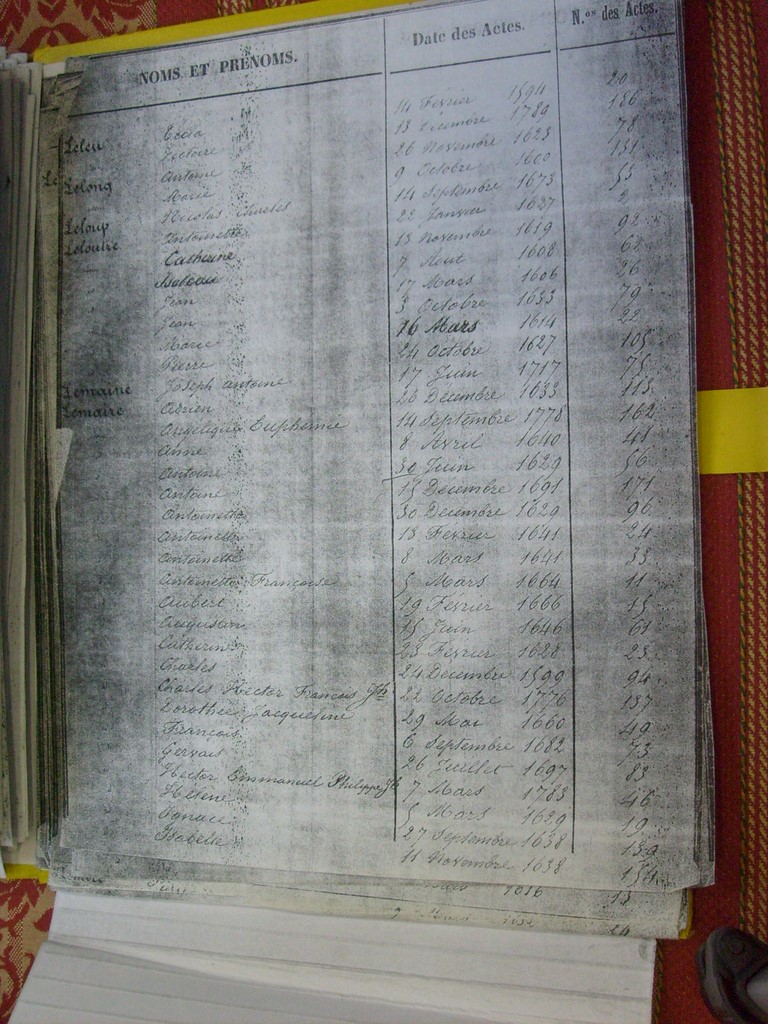 NOMS ET PRÉNOMS. Date des Actes. N.os des Actes.
Leleu 14 Fevrier 1594 20
Victoire 13 Decembre 1789 186
Antoine 26 Novembre 1623 78
Lelong Marie 9 Octobre 1600 131
Nicolas 14 Septembre 1673 53
Leloup Antoinette 22 Janvier 1627 2
Leloutre Catherine 13 Novembre 1619 92
Isabeau 7 Aout 1608 68
Jean 17 Mars 1606 26
Jean 3 Octobre 1633 79
Marie 16 Mars 1614 22
Pierre 24 Octobre 1627 105
Lemaine Joseph antoine 17 Juin 1717 75
Lemaire Adrien 26 Decembre 1633 113
Angelique Euphemie 14 Septembre 1778 162
Anne 8 Avril 1640 41
Antoine 30 Juin 1629 56
Antoine 15 Decembre 1691 171
Antoinette 30 Decembre 1629 96
Antoinette 13 Fevrier 1641 24
Antoinette 8 Mars 1641 33
Antoinette Francoise 5 Mars 1664 11
Aubert 19 Fevrier 1666 15
Augustin 15 Juin 1646 61
Catherin 23 Fevrier 1628 23
Charles 24 Decembre 1599 94
Charles Hector Francois Jh 22 Octobre 1776 137
Dorothee Jacqueline 29 Mai 1660 49
Francois 6 Septembre 1682 73
Gervais 26 Juillet 1697 83
Hector Emmanuel Philippe Jh 7 Mars 1783 46
Helene 5 Mars 1639 19
Ignace 27 Septembre 1638 139
Isabelle 11 Novembre 1638 154